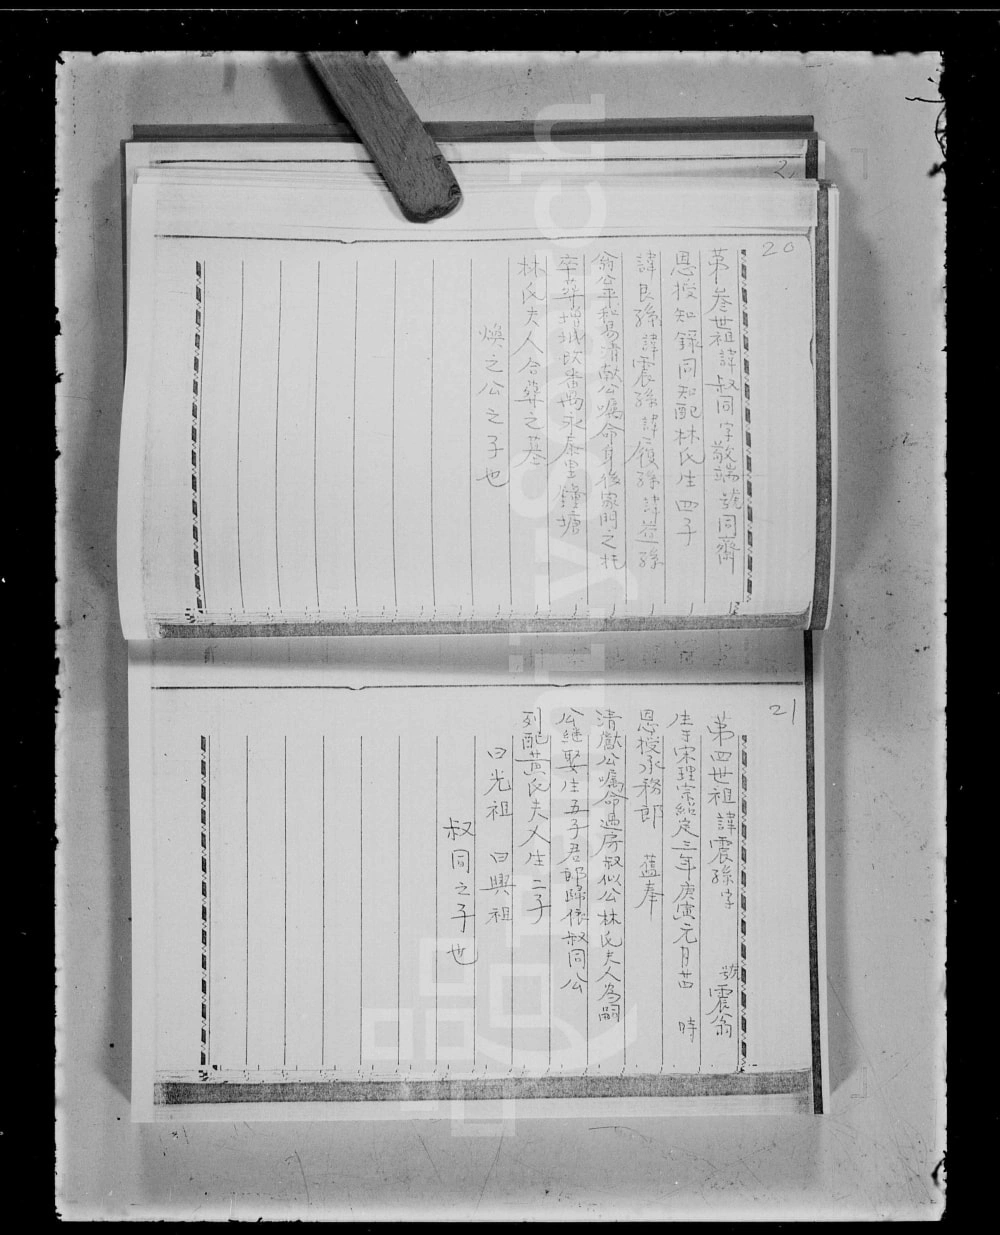 2
20
第叁世祖諱叔同字敬端號同齋
恩授知錄同知配林氏生四子
諱良孫諱震孫諱復孫諱益孫
翁公平私易清獻公囑命身後家門之托
卒葬增城坎番禺永泰里鐘塘
林氏夫人合葬之墓
煥之公之子也
21
第四世祖諱震孫字 號震翁
生于宋理宗紹定三年庚寅元月廿 時
恩授承務郎 蘊奉
清獻公囑命過房叔似公林氏夫人為嗣
公繼娶生五子君郎歸依叔同公
列配黃氏夫人生二子
曰光祖 曰興祖
叔同之子也
FamilySearch